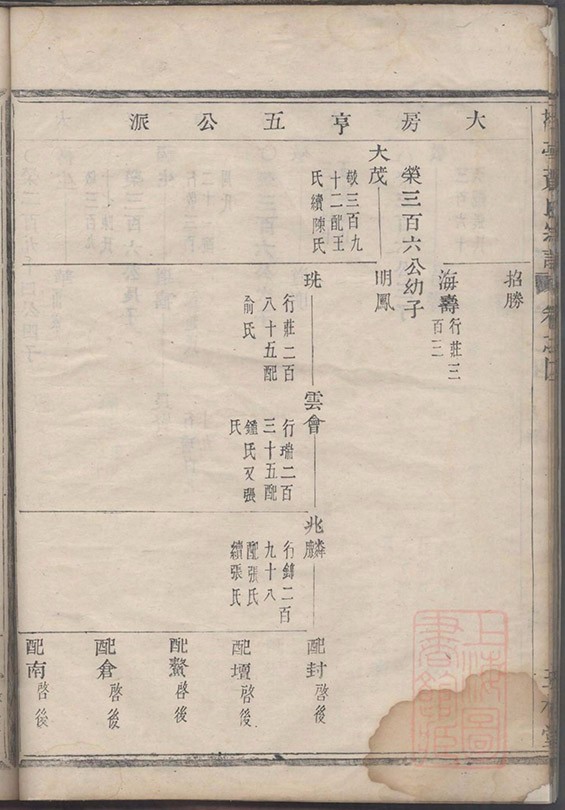 大房亨五公派
招勝
海壽 行莊三百三
榮三百六公幼子
大茂 敬三百九十二配王氏續陳氏
明鳳
珗 行莊二百八十五配俞氏
雲會 行瑞二百三十五配鍾氏又張氏
兆麟 行鑄二百九十八配張氏續張氏
配封 啓後
配壇 啓後
配鰲 啓後
配倉 啓後
配南 啓後
氏宗譜
卷之
堂
上海圖書館藏